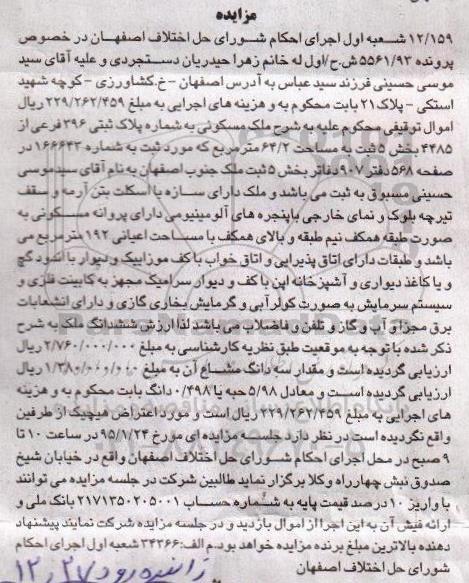 مزایده
۱۲/۱۵۹ شعبه اول اجرای احکام شورای حل اختلاف اصفهان در خصوص
پرونده ۵۵۶۱/۹۳ ش.ح/اول له خانم زهرا حیدریان دستجردی و علیه آقای سید
موسی حسینی فرزند سید عباس به آدرس اصفهان -خ.کشاورزی -کوچه شهید
استکی - پلاک ۲۱ بابت محکوم به و هزینه های اجرایی به مبلغ ۲۲۹/۲۶۲/۴۵۹ ریال
اموال توقیفی محکوم علیه به شرح ملک مسکونی به شماره پلاک ثبتی ۳۹۶ فرعی از
۴۴۸۵ بخش ۵ ثبت به مساحت ۶۴/۲ مترمربع که مورد ثبت به شماره ۱۶۶۶۴۳ در
صفحه ۵۶۸ دفتر ۹۰۷ دفاتر بخش ۵ ثبت ملک جنوب اصفهان به نام آقای سیدموسی
حسینی مسبوق به ثبت می باشد و ملک دارای سازه با اسکلت بتن آرمه و سقف
تیرچه بلوک و نمای خارجی با پنجره های آلومینیومی دارای پروانه مسکونی به
صورت طبقه همکف نیم طبقه و بالای همکف با مساحت اعیانی ۱۹۲ مترمربع می
باشد و طبقات دارای اتاق پذیرایی و اتاق خواب با کف موزاییک و دیوار با اندود گچ
و یا کاغذ دیواری و آشپزخانه اپن با کف و دیوار سرامیک مجهز به کابینت فلزی و
سیستم سرمایش به صورت کولر آبی و گرمایش بخاری گازی و دارای انشعابات
برق مجزا و آب و گاز و تلفن و فاضلاب می باشد لذا ارزش ششدانگ ملک به شرح
ذکر شده با توجه به موقعیت طبق نظریه کارشناسی به مبلغ ۲/۷۶۰/۰۰۰/۰۰۰ ریال
ارزیابی گردیده است و مقدار سه دانگ مشاع آن به مبلغ ۱/۳۸۰/۰۰۰/۰۰۰ ریال
ارزیابی گردیده است و معادل ۵/۹۸ حبه یا ۰/۴۹۸ دانگ بابت محکوم به و هزینه
های اجرایی به مبلغ ۲۲۹/۲۶۲/۴۵۹ ریال است و مورد اعتراض هیچیک از طرفین
واقع نگردیده است در نظر دارد جلسه مزایده ای مورخ ۹۵/۱/۲۴ در ساعت ۱۰ تا
۹ صبح در محل اجرای احکام شورای حل اختلاف اصفهان واقع در خیابان شیخ
صدوق نبش چهارراه وکلا برگزار نماید طالبین شرکت در جلسه مزایده می توانند
با واریز ۱۰ درصد قیمت پایه به شماره حساب ۲۱۷۱۳۵۰۲۰۵۰۰۱ بانک ملی و
ارائه فیش آن به این اجرا از اموال بازدید و در جلسه مزایده شرکت نمایند پیشنهاد
دهنده بالاترین مبلغ برنده مزایده خواهد بود.م الف:۳۴۳۶۶ شعبه اول اجرای احکام
شورای حل اختلاف اصفهان
زاینده رود ۱۲،۲۷